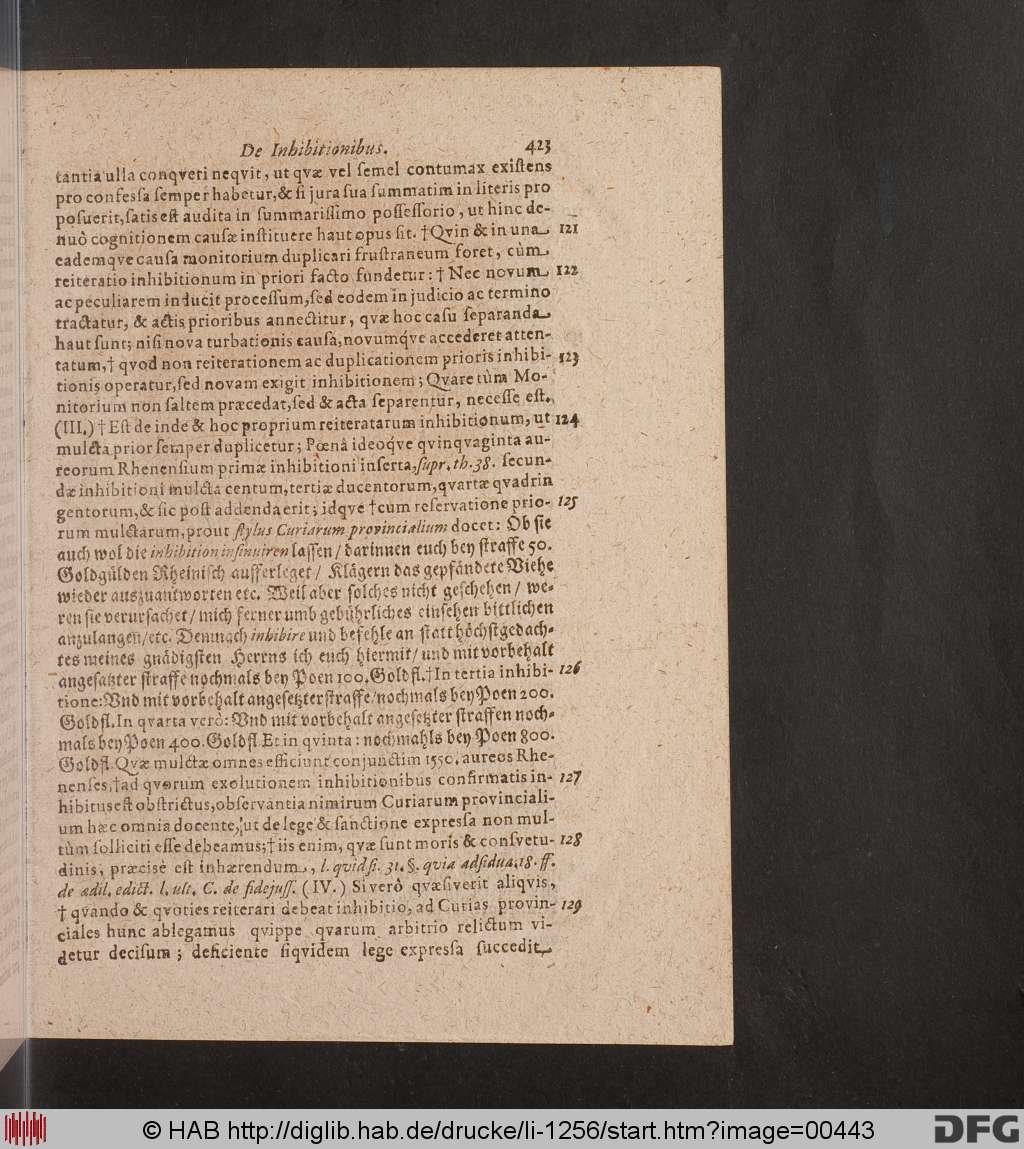 De Inhibitionibus. 423
tantia ulla conqveri neqvit, ut qvæ vel ſemel contumax exiſtens
pro confeſſa ſemper habetur,& ſi jura ſua ſummatim in literis pro
poſuerit,ſatis eſt audita in ſummariſſimo poſſeſſorio, ut hinc de-
nuò cognitionem cauſæ inſtituere haut opus ſit. †Qvin & in una 121
eademqve cauſa monitorium duplicari fruſtraneum foret, cùm
reiteratio inhibitionum in priori facto fundetur: † Nec novum 122
ac peculiarem inducit proceſſum,ſed eodem in judicio ac termino
tractatur, & actis prioribus annectitur, qvæ hoc caſu ſeparanda
haut ſunt; niſi nova turbationis cauſa,novumq́ve accederet atten-
tatum,† qvod non reiterationem ac duplicationem prioris inhibi- 123
tionis operatur,ſed novam exigit inhibitionem; Qvare tùm Mo-
nitorium non ſaltem præcedat,ſed & acta ſeparentur, neceſſe eſt.
(III.) † Eſt de inde & hoc proprium reiteratarum inhibitionum, ut 124
mulcta prior ſemper duplicetur; Pœnâ ideoqve qvinqvaginta au-
reorum Rhenenſium primæ inhibitioni inſerta,ſupr. th. 38. ſecun-
dæ inhibitioni mulcta centum,tertiæ ducentorum,qvartæ qvadrin
gentorum,& ſic poſt addenda erit; idqve †cum reſervatione prio- 125
rum mulctarum,prout ſtylus Curiarum provincialium docet: Ob ſie
auch wol die inhibition inſinuiren laſſen / darinnen euch bey ſtraffe 50.
Goldgülden Rheiniſch aufferleget / Klägern das gepfändete Viehe
wieder auszuantworten etc. Weil aber ſolches nicht geſchehen / we-
ren ſie verurſachet / mich ferner umb gebührliches einſehen bittlichen
anzulangen/etc. Demnach inhibire und befehle an ſtatt höchſtgedach-
tes meines gnädigſten Herrns ich euch hiermit / und mit vorbehalt
angeſatzter ſtraffe nochmals bey Poen 100. Goldfl.†In tertia inhibi- 126
tione: Vnd mit vorbehalt angeſetzter ſtraffe/nochmals bey Poen 200.
Goldfl. In qvarta verò: Vnd mit vorbehalt angeſetzter ſtraffen noch-
mals bey Poen 400. Goldfl. Et in qvinta: nochmahls bey Poen 800.
Goldfl. Qvæ mulctæ omnes efficiunt conjunctim 1550. aureos Rhe-
nenſes,†ad qvorum exolutionem inhibitionibus confirmatis in- 127
hibitus eſt obſtrictus,obſervantia nimirum Curiarum provinciali-
um hæc omnia docente, ut de lege & ſanctione expreſſa non mul-
tùm ſolliciti eſſe debeamus;† iis enim, qvæ ſunt moris & conſvetu- 128
dinis, præcisè eſt inhærendum, l. quid ſi. 31. §. quia adſidua. 18. ff.
de ædil. edict. l. ult. C. de fidejuſſ. (IV.) Si verò qvæſiverit aliqvis,
† qvando & qvoties reiterari debeat inhibitio, ad Curias provin- 129
ciales hunc ablegamus qvippe qvarum arbitrio relictum vi-
detur deciſum; deficiente ſiqvidem lege expreſſa ſuccedit
© HAB http://diglib.hab.de/drucke/li-1256/start.htm?image=00443
DFG